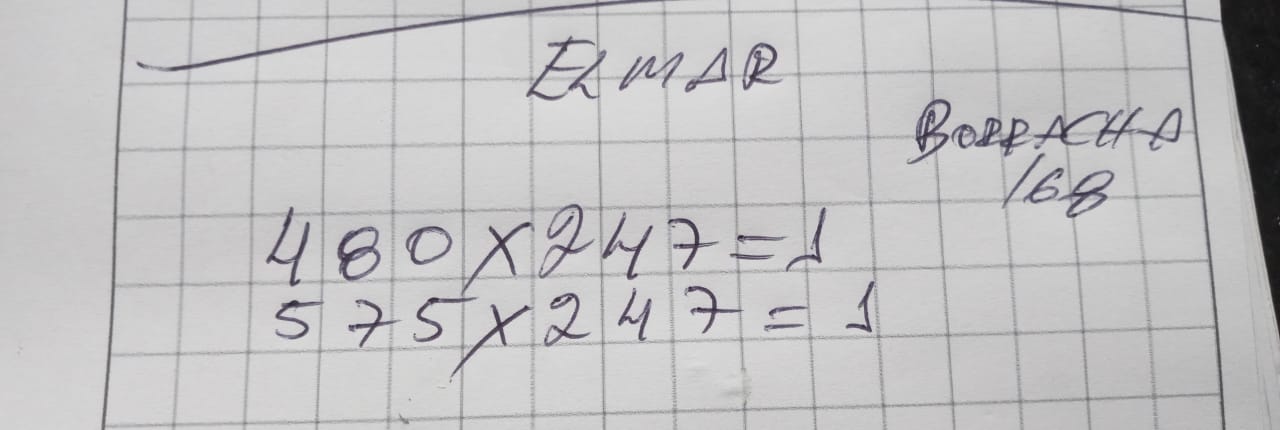 ELMAR
BORRACHA
168
480X247=1
575X247=1